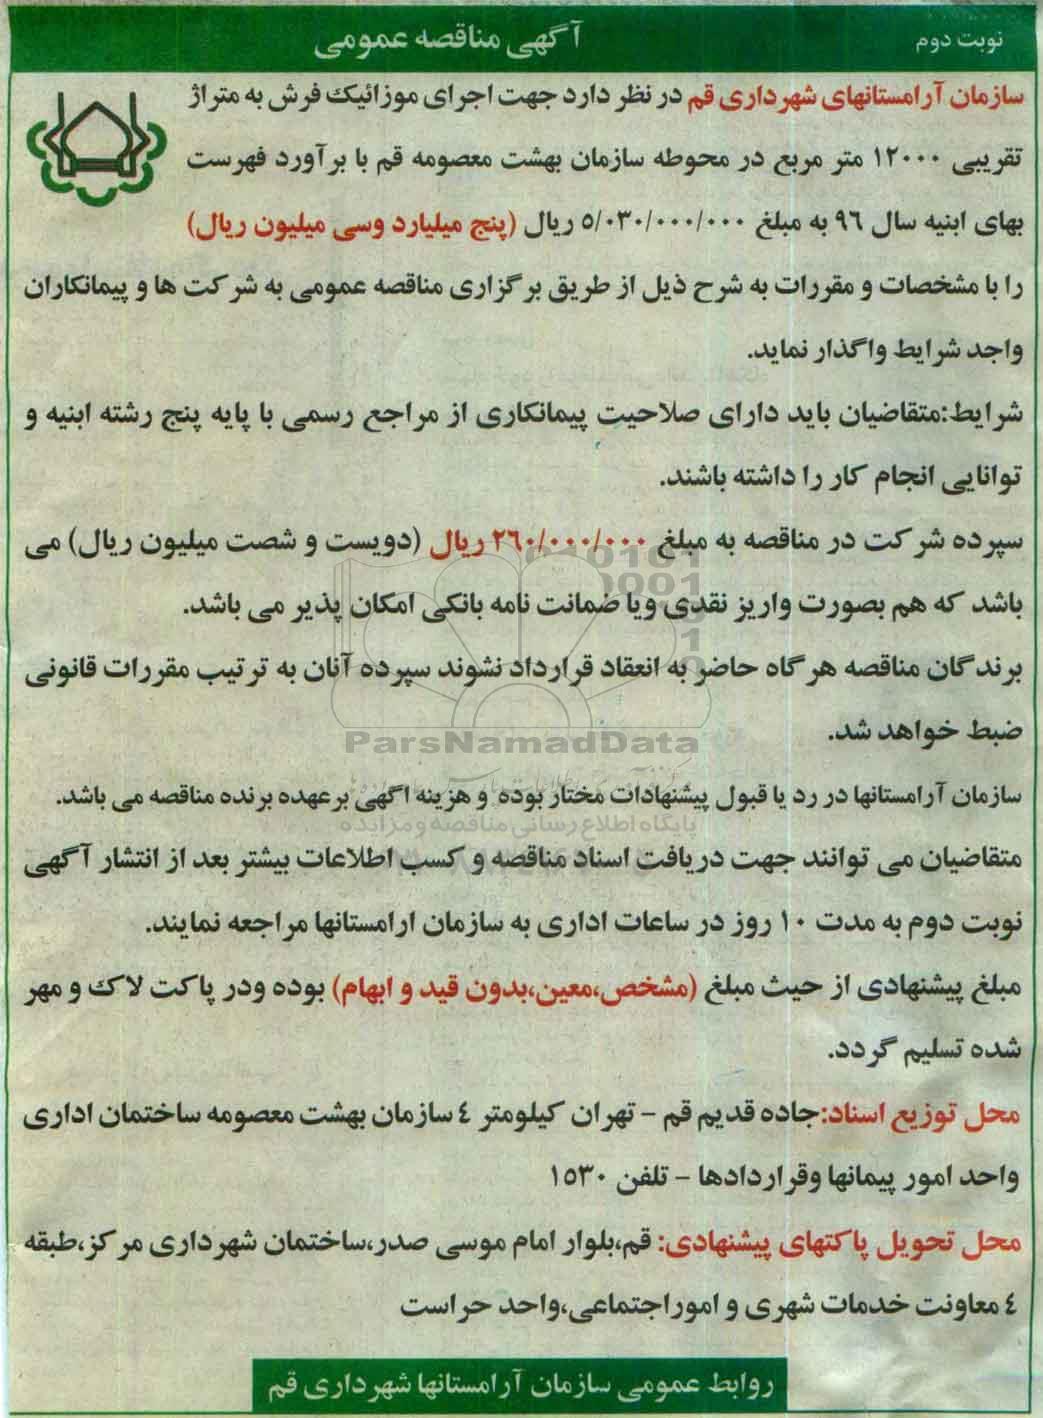 نوبت دوم
آگهی مناقصه عمومی
سازمان آرامستانهای شهرداری قم در نظر دارد جهت اجرای موزائیک فرش به متراژ
تقریبی ۱۲۰۰۰ متر مربع در محوطه سازمان بهشت معصومه قم با برآورد فهرست
بهای ابنیه سال ۹۶ به مبلغ ۵/۰۳۰/۰۰۰/۰۰۰ ریال (پنج میلیارد وسی میلیون ریال)
را با مشخصات و مقررات به شرح ذیل از طریق برگزاری مناقصه عمومی به شرکت ها و پیمانکاران
واجد شرایط واگذار نماید.
شرایط:متقاضیان باید دارای صلاحیت پیمانکاری از مراجع رسمی با پایه پنج رشته ابنیه و
توانایی انجام کار را داشته باشند.
سپرده شرکت در مناقصه به مبلغ ۲۶۰/۰۰۰/۰۰۰ ریال (دویست و شصت میلیون ریال) می
باشد که هم بصورت واریز نقدی ویا ضمانت نامه بانکی امکان پذیر می باشد.
برندگان مناقصه هرگاه حاضر به انعقاد قرارداد نشوند سپرده آنان به ترتیب مقررات قانونی
ضبط خواهد شد.
ParsNamadData
سازمان آرامستانها در رد یا قبول پیشنهادات مختار بوده و هزینه اگهی برعهده برنده مناقصه می باشد.
پایگاه اطلاع رسانی مناقصه و مزایده
متقاضیان می توانند جهت دریافت اسناد مناقصه و کسب اطلاعات بیشتر بعد از انتشار آگهی
نوبت دوم به مدت ۱۰ روز در ساعات اداری به سازمان ارامستانها مراجعه نمایند.
مبلغ پیشنهادی از حیث مبلغ (مشخص،معین،بدون قید و ابهام) بوده ودر پاکت لاک و مهر
شده تسلیم گردد.
محل توزیع اسناد:جاده قدیم قم - تهران کیلومتر ٤ سازمان بهشت معصومه ساختمان اداری
واحد امور پیمانها وقراردادها - تلفن ۱۵۳۰
محل تحویل پاکتهای پیشنهادی: قم،بلوار امام موسی صدر،ساختمان شهرداری مرکز،طبقه
٤ معاونت خدمات شهری و اموراجتماعی،واحد حراست
روابط عمومی سازمان آرامستانها شهرداری قم